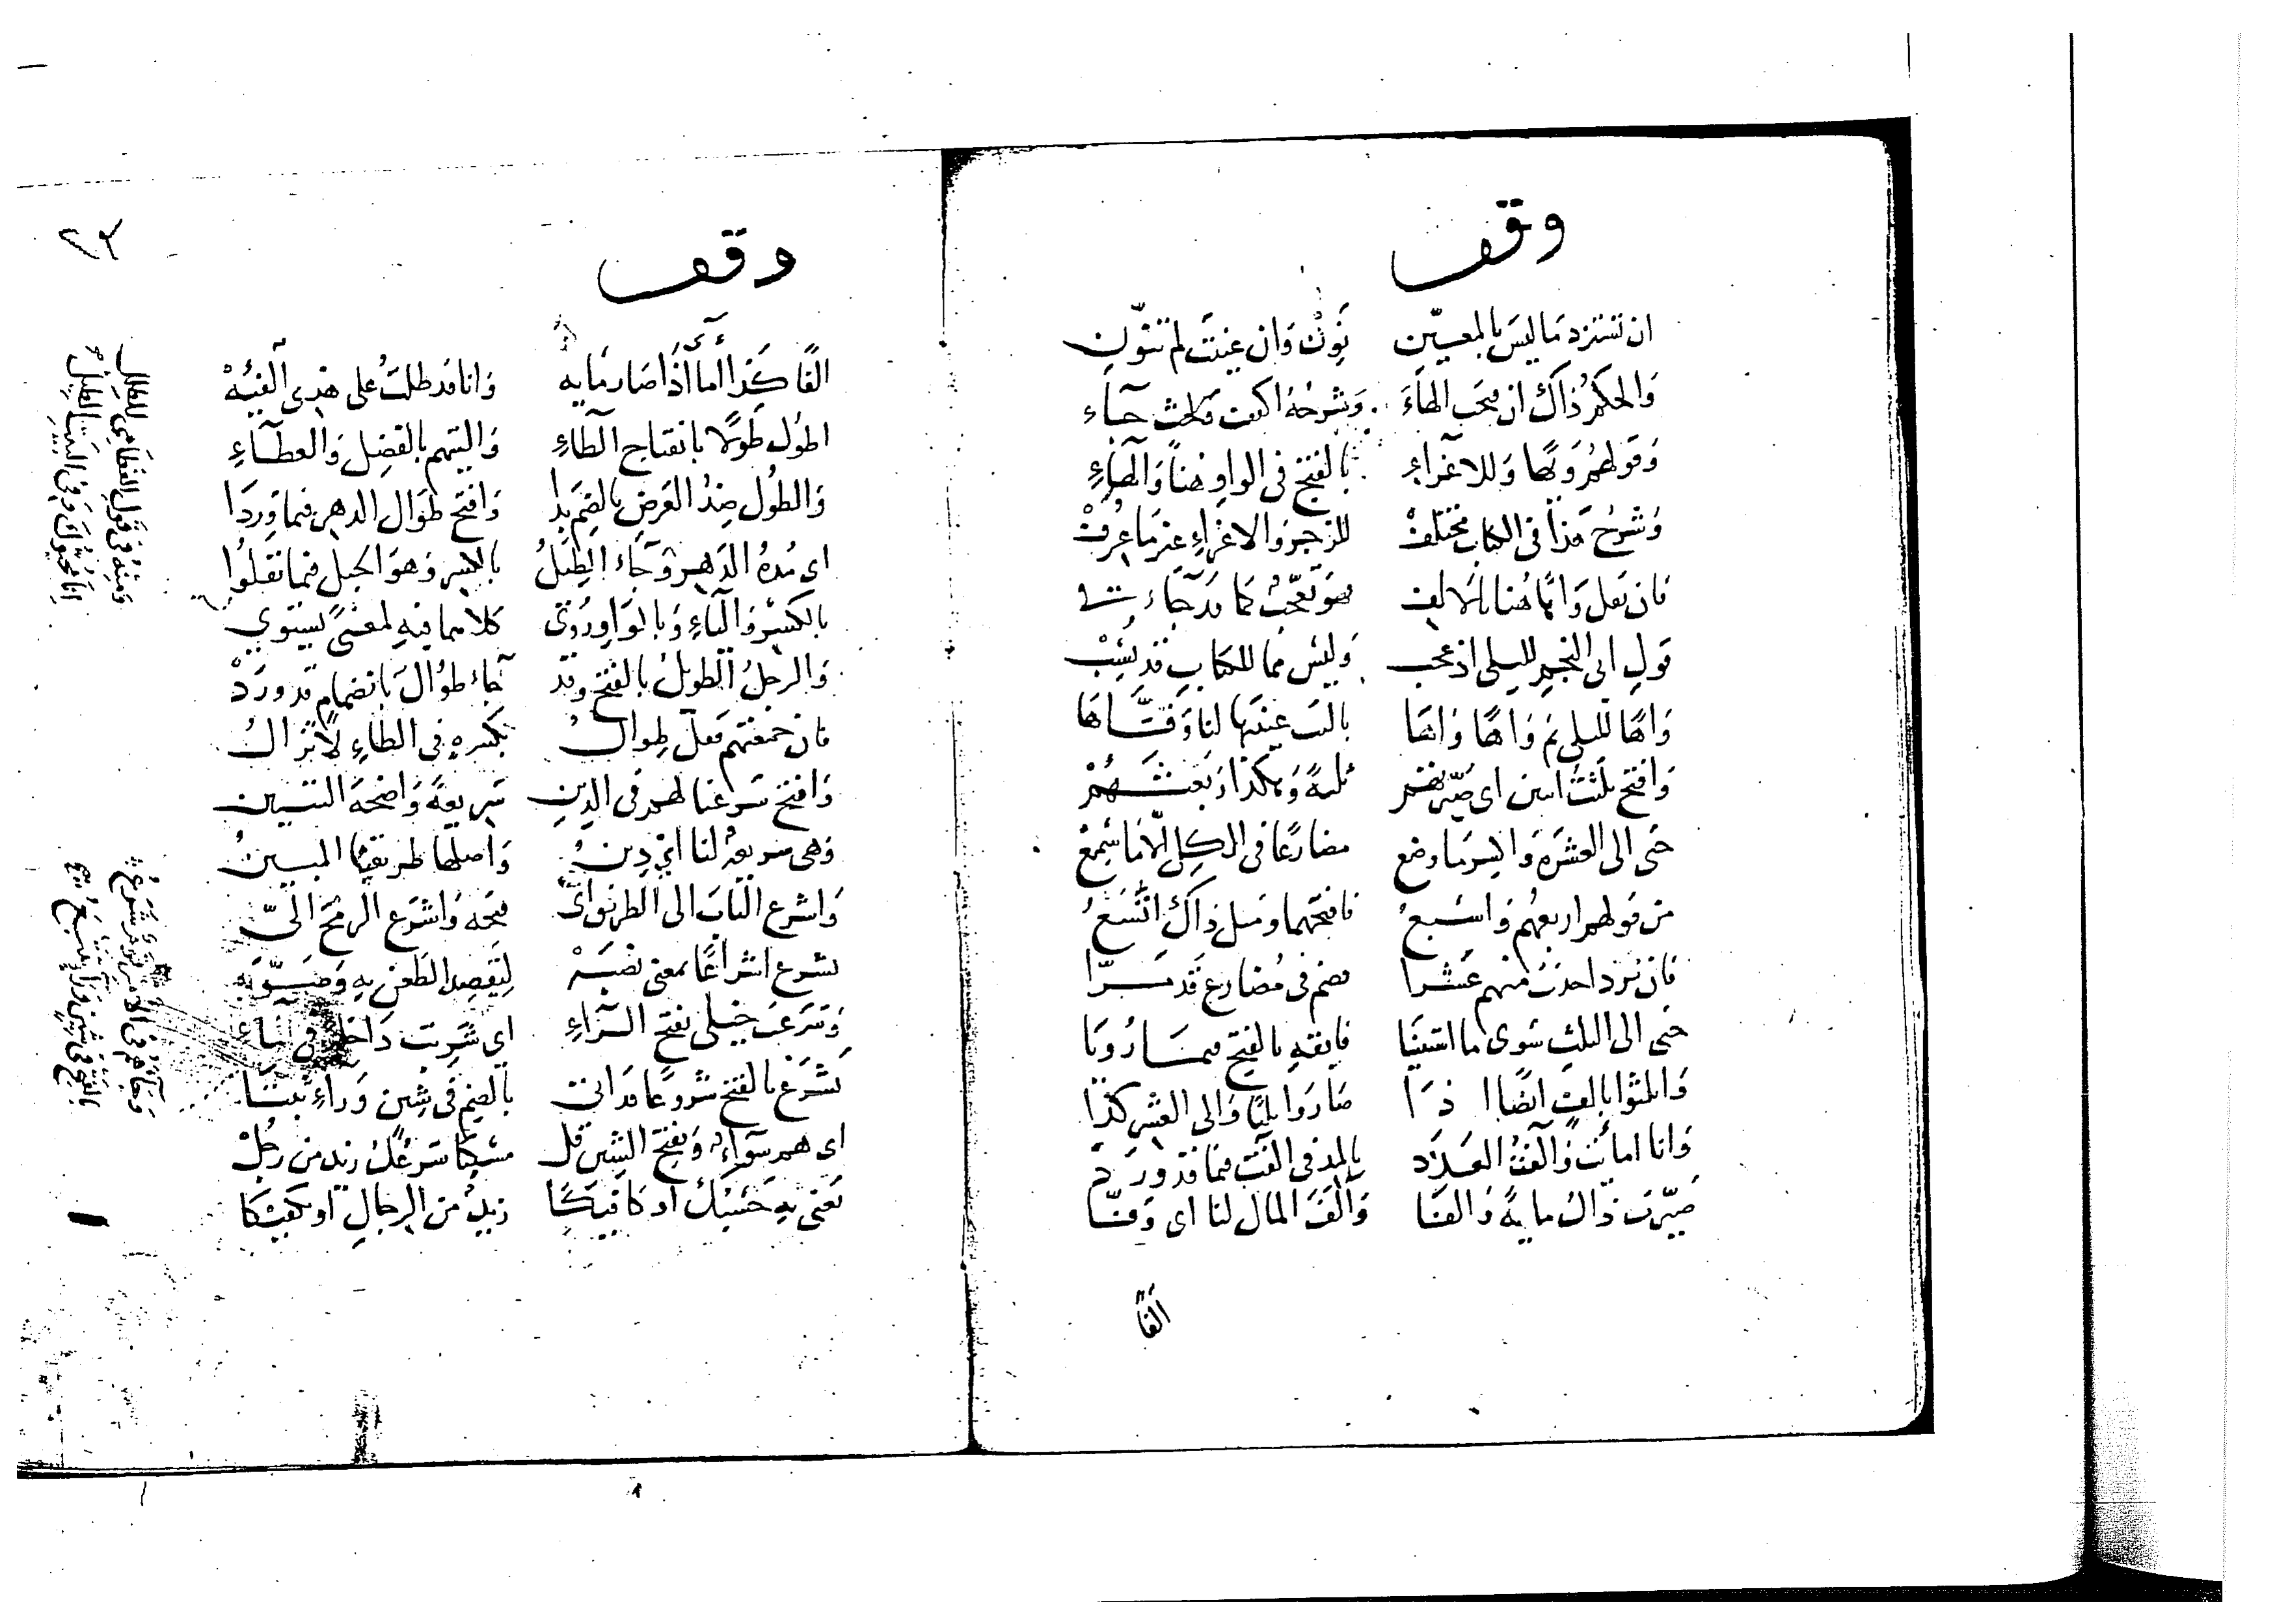 وقف
ان تستزد مَا ليسَ بالمعيّنِ نَوِّنْ وَان عَيَّنتَ لم تنوّنِ
وَالحكمُ ذاكَ ان فتحت الهاءَ وَشرحُهُ اكفف جاء
وَقولهُم وَيْهًا وَللاغرآءِ بالفتح فى الواوِ هنا وَالهاءِ
وَشرحُ هَذا فى الكتاب مختلفْ للزجرِ والاغراءِ غير مَا عُرِفْ
فان تقل وَاهًا هُنا بالالف فهوَ تعجّبٌ كما قد جاء فى
قولِ ابى النجمِ لليلى اذ عجب وَليسَ مما للكتابِ قد نُسِبْ
وَاهًا لليلى ثم وَاهًا وَاهَا ياليت عينيها لنا وَفَاهَا
وَافتح ثلثتُ اثنين اى صيّرتهم ثلثةً وَهكذا ربَعتُهُمْ
حتى الى العشرة وَاكسر مَا وضع مضارعًا فى الكلِ الّا مَا سُمِعْ
من قولهم اربعهُم وَاسبعُ فافتحهما ومثل ذاكَ اتْسَعُ
فان تُرد اخذتُ منهم عُشرا فضم فى مُضارعٍ قد مَرّا
حتى الى الثلثِ سوى ما استثنيَا فابقهِ بالفتح فيما رُويَا
وَاثلثوا بالفٍ ايضًا اذا صَاروا ثلثًا وَالى العشرِ كذا
وَانا امأيتُ وَآلفتُ العَدَد بالمدِ فى آلفت فيما قد ورد
صَيّرت ذاكَ مايةً وَالفَا وَآلَفَ المال لنا اى وَفّا
الفًا

وقف
٢٣
الفًا كَذا امأا اذَا صَار مَايه وَانا قد طلتُ على هذى الفئهْ
اطوُل طَولًا بانفتاح الطاءِ وَاليتهم بالفضلِ وَالعطآءِ
وَالطُول ضِدُ العَرضِ بالضم بدا وَافتح طَوَال الدهر فيما وَرَدَا
اى مُدةُ الدَهرِ وَجآء الطِيَلُ بالكسرِ وَهوَ الحبل فيما نقلُوا
بالكسْرِ وَالياءِ وَبالوَاوِ رُوِى كلاهما فيهِ لمعنىً يستوي
وَالرجلُ الطويلُ بالفتحِ وقد جآء طُوَالَ بانضمامٍ قد ورَدْ
فان جمعتهم فقل طِوالُ بكسرهِ فى الطاءِ لا تزالُ
وَافتح شرعنا لهم فى الدينِ شريعةً وَاضحة التبيينِ
وَهى شريعةٌ لنا اىْ دينُ وَاصلها طريقنا المبينُ
وَاشرع البَابَ الى الطريق اىْ فتحه وَاشرَعِ الرمحَ الىّ
يشرع اشراعًا بمعنى نصَبَهْ لِيَقصِدَ الطَعن بهِ وَصَوّبَه
وَشرَعَت خيلى بفتح الرآءِ اى شَرِبت دَاخلةً فى المآءِ
تشرَعُ بالفتح شُروعًا قد اتى بالضمِ فى شِينٍ وَرآءٍ ثبتَا
اى هم سَوآءٌ وَبفتح الشينِ قل شرعُكَ زيدٌ من رَجُلْ
تعنى بهِ حَسْبُكَ او كافيكَا زيدٌ من الرجالِ او يكفيكَا
وَمِنهُ فى قَولِ القطَامِي للطلل
اِنا مُحَيُّوكَ
وَجآءَ هُم فى الامرِ قومٌ شَرَعُ
بالفتح فى شينٍ وَرآءٍ